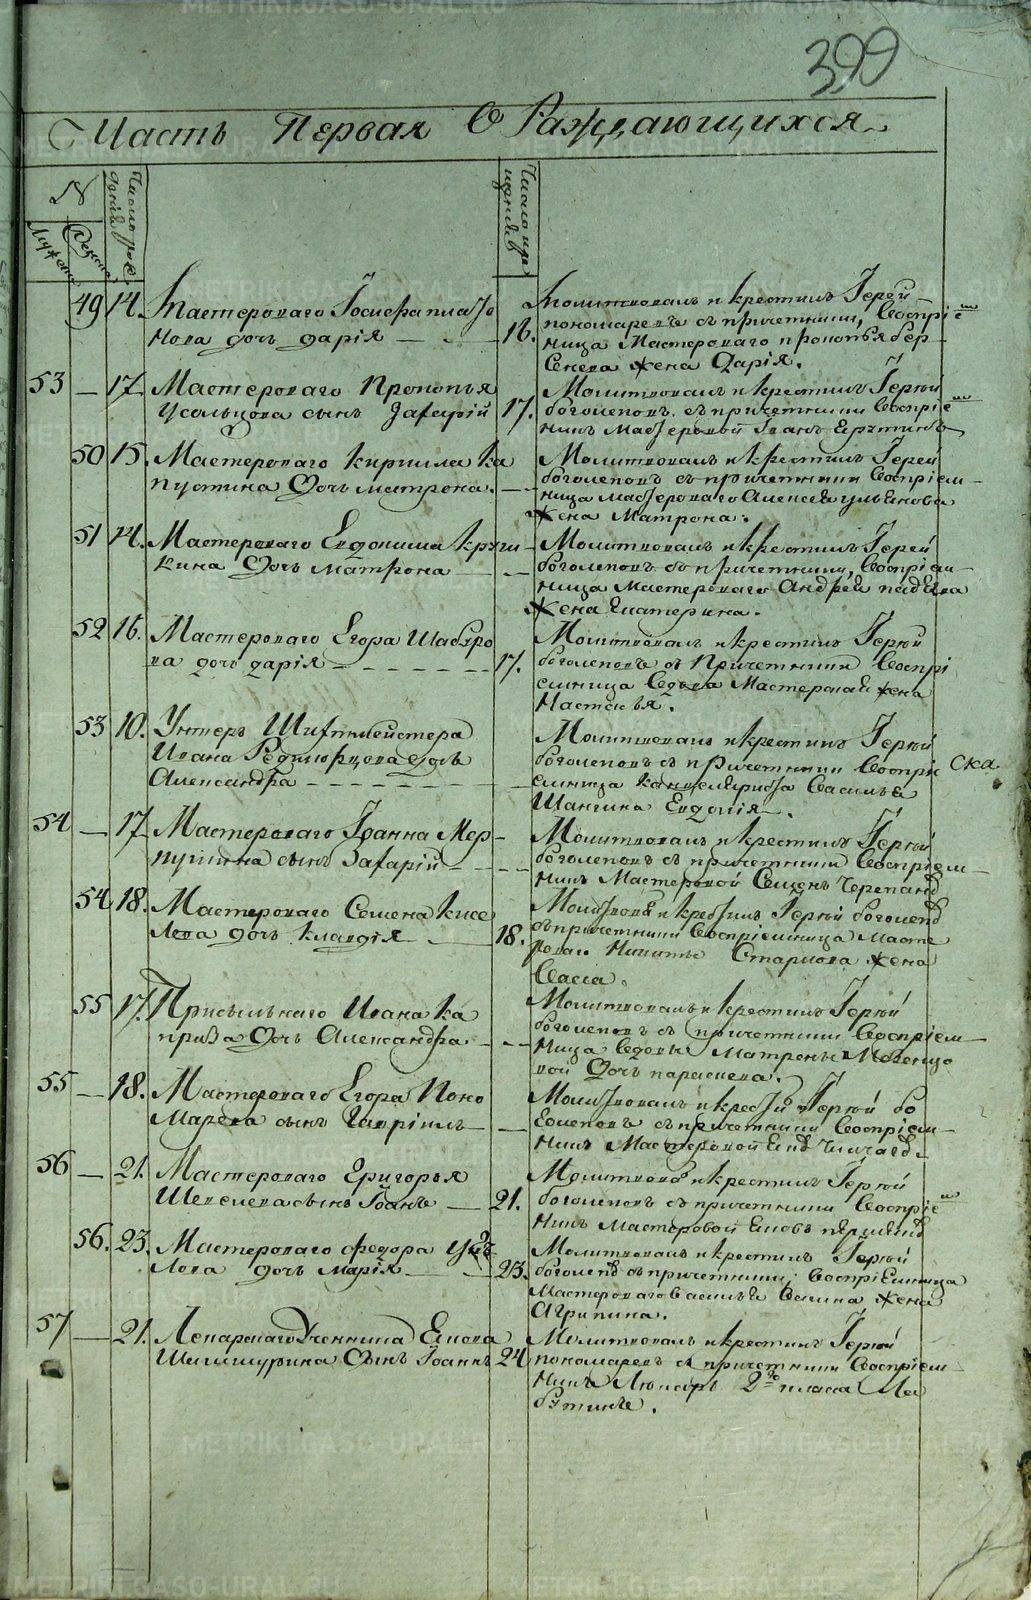 399
Часть Первая О Раждающихся
№
Число рож
дения
Число кр
щения
Мужеска
Женска
49 14. Мастероваго Иосафа плато
нова дочь дарія 16.
Молитвовалъ и крестилъ Іерей
пономаревъ съ причетники, Воспріем
ница Мастероваго прокопья бер
сенева жена Дарія.
53 — 17. Мастероваго Прокопья
Усольцова сынъ Захарій 17.
Молитвовалъ и крестилъ Іерей
боголеповъ съ причетники Воспріем
никъ Мастеровой Іванъ
50 15. Мастероваго Кирилла Ка
пустина Дочь матрона.
Молитвовалъ и крестилъ Іерей
боголеповъ съ причетники Воспріем
ница мастероваго Алексея ульянова
жена Матрона.
51 14. Мастероваго Евдокима
кина Дочь матрона
Молитвовалъ и крестилъ Іерей
боголеповъ съ причетники, Воспріем
ница мастероваго Андрея
жена Екатерина.
52 16. Мастероваго Егора Шабуро
ва дочь дарія 17.
Молитвовалъ и крестилъ Іерей
боголеповъ съ Причетники Воспрі
емница Седьва Мастерская жена
Настасья.
53 10. Унтеръ Шихтмейстера
Ивана Редикорцова дочь
Александра
Молитвовалъ и крестилъ Іерей
боголеповъ съ причетники Воспрі
емница Василья
Шангина Евдокія. ска
54 — 17. Мастероваго Іоанна Мер
кушина сынъ Захарій
Молитвовалъ и крестилъ Іерей
боголеповъ съ причетники Воспріем
никъ Мастеровой Семенъ Черепановъ
54 18. Мастероваго Семена Кисе
лева дочь клавдія 18.
Молитвовалъ и крестилъ Іерей боголеповъ
съ причетники Воспріемница Масте
роваг. Никиты Старкова жена
Васса.
55 17. Присыльнаго Ивана Ка
приза Дочь Александра
Молитвовалъ и крестилъ Іерей
боголеповъ съ причетники Воспріем
ница Вдовы Матрены
вой Дочь параскева.
55 — 18. Мастероваго Егора Поно
марева сынъ Гавріилъ
Молитвовалъ и крестилъ Іерей бо
голеповъ съ причетники Воспріем
никъ Мастеровой
56 — 21. Мастероваго Григорья
Шевелева сынъ Іоаннъ 21.
Молитвовалъ и крестилъ Іерей
боголеповъ съ причетники Воспріем
никъ Мастеровой Яковъ
56. 23. Мастероваго федора
лова дочь Марія 23.
Молитвовалъ и крестилъ Іерей
боголеповъ съ причетники, Воспріемница
Мастероваго Василья жена
Агрипина.
57 — 21. Лекарскаго Ученика Якова
Шишмурина Сынъ Іоаннъ 24
Молитвовалъ и крестилъ Іерей
пономаревъ съ причетники Воспріем
никъ Лекарь 2го класса Ма
бутинъ.
METRIKI.GASO-URAL.RU